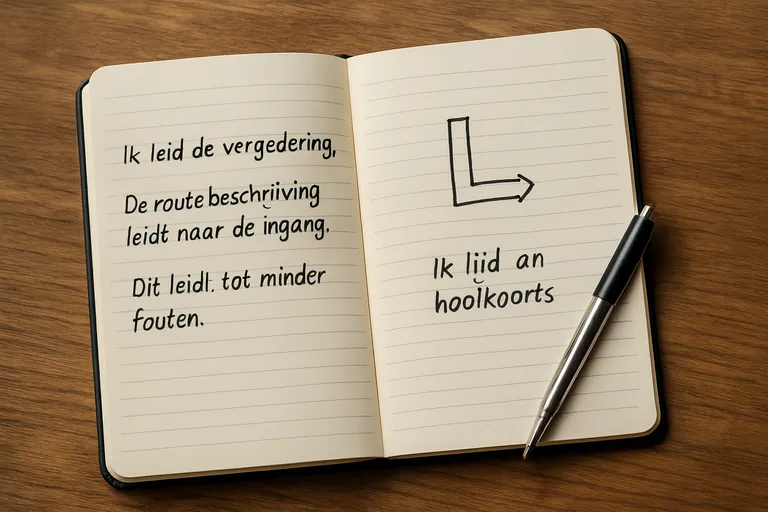 Ik leid de vergedering,
De routebeschrijving
leidt naar de ingang.
Dit leidl. tot minder
fouten.
Ik lijd an
hoolkoorts